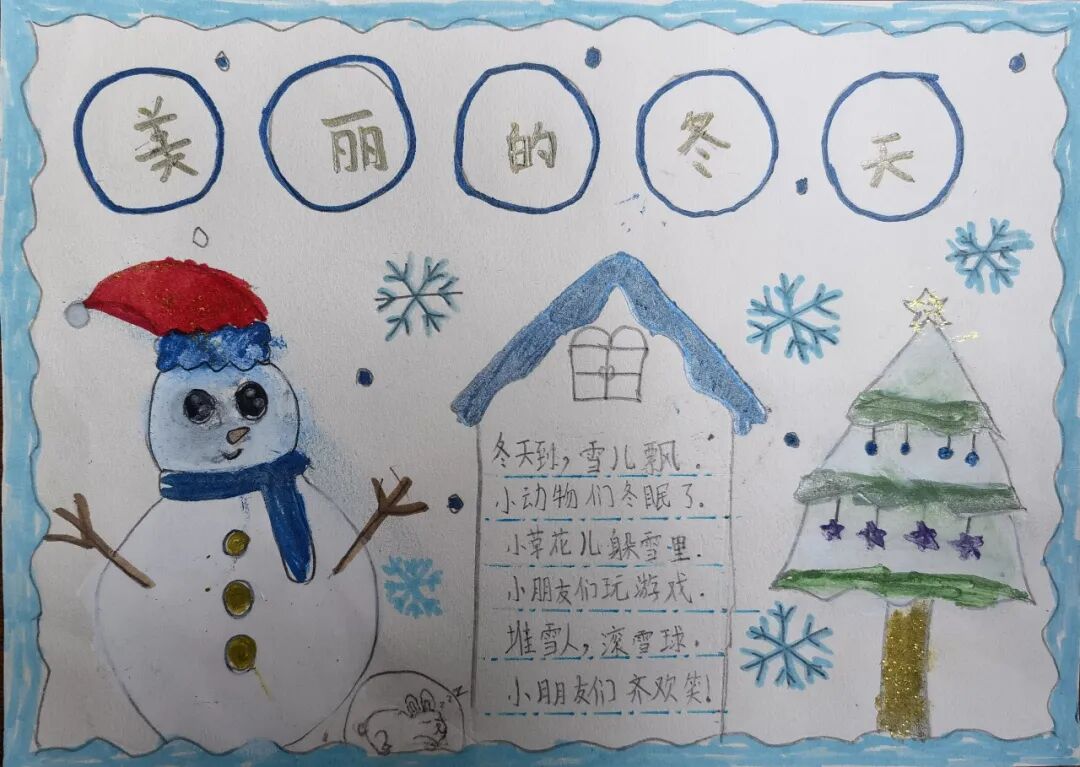 美丽的冬天
冬天到，雪儿飘．
小动物们冬眠了．
小草花儿躲雪里．
小朋友们玩游戏．
堆雪人，滚雪球．
小朋友们齐欢笑！
zz